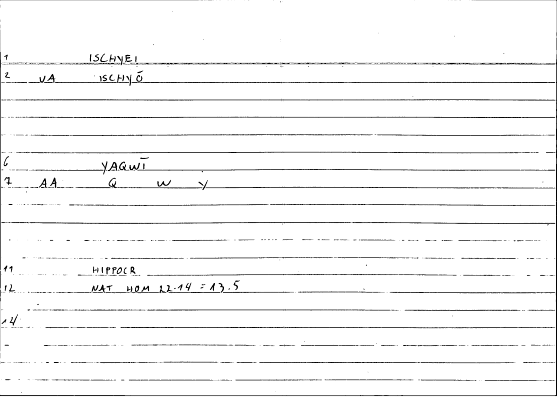 1 ISCHYEI
2 UA ISCHYŌ
6 YAQWĪ
7 AA Q W Y
11 HIPPOCR
12 NAT HOM 22.14 = 13.5
14